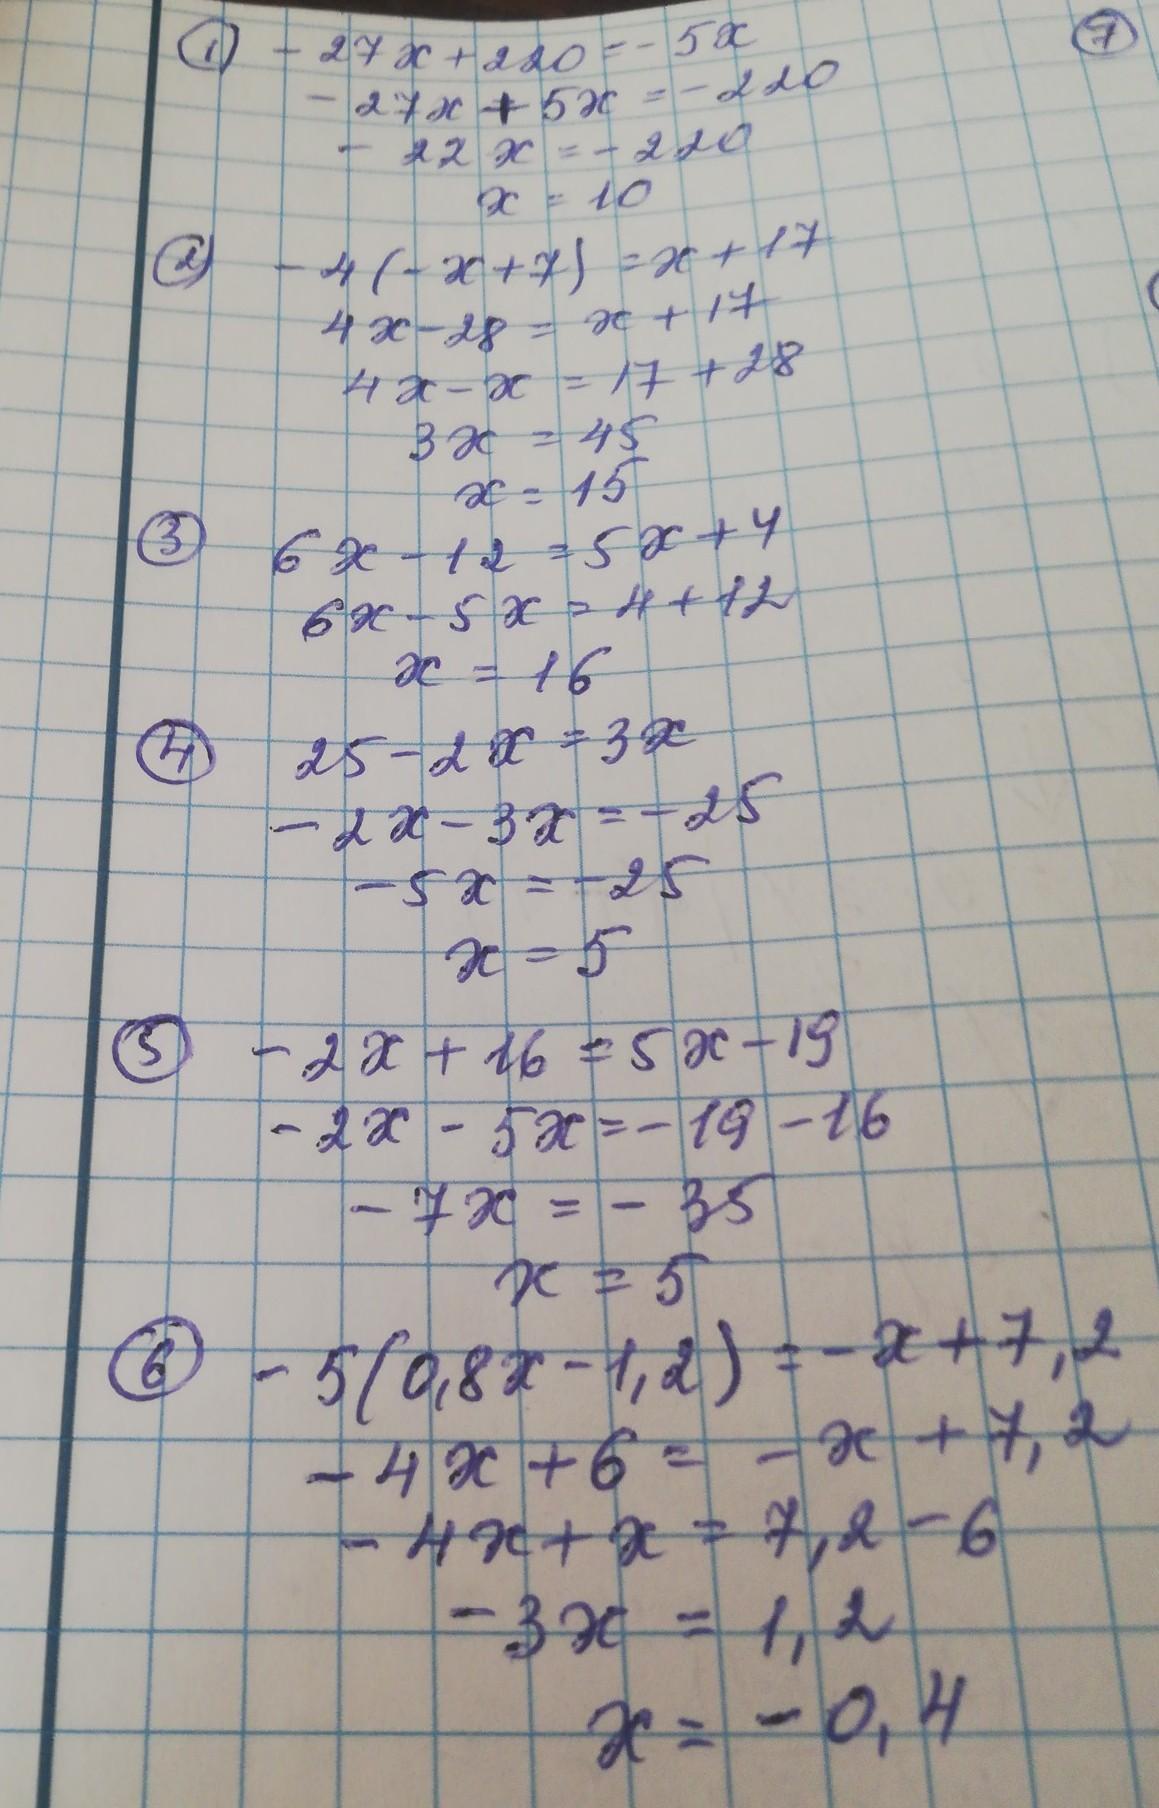 ① - 27x + 220 = - 5x
- 27x + 5x = - 220
- 22x = - 220
x = 10
② - 4(- x + 7) = x + 17
4x - 28 = x + 17
4x - x = 17 + 28
3x = 45
x = 15
③ 6x - 12 = 5x + 4
6x - 5x = 4 + 12
x = 16
④ 25 - 2x = 3x
- 2x - 3x = - 25
- 5x = - 25
x = 5
⑤ - 2x + 16 = 5x - 19
- 2x - 5x = - 19 - 16
- 7x = - 35
x = 5
⑥ - 5(0,8x - 1,2) = - x + 7,2
- 4x + 6 = - x + 7,2
- 4x + x = 7,2 - 6
- 3x = 1,2
x = - 0,4
⑦